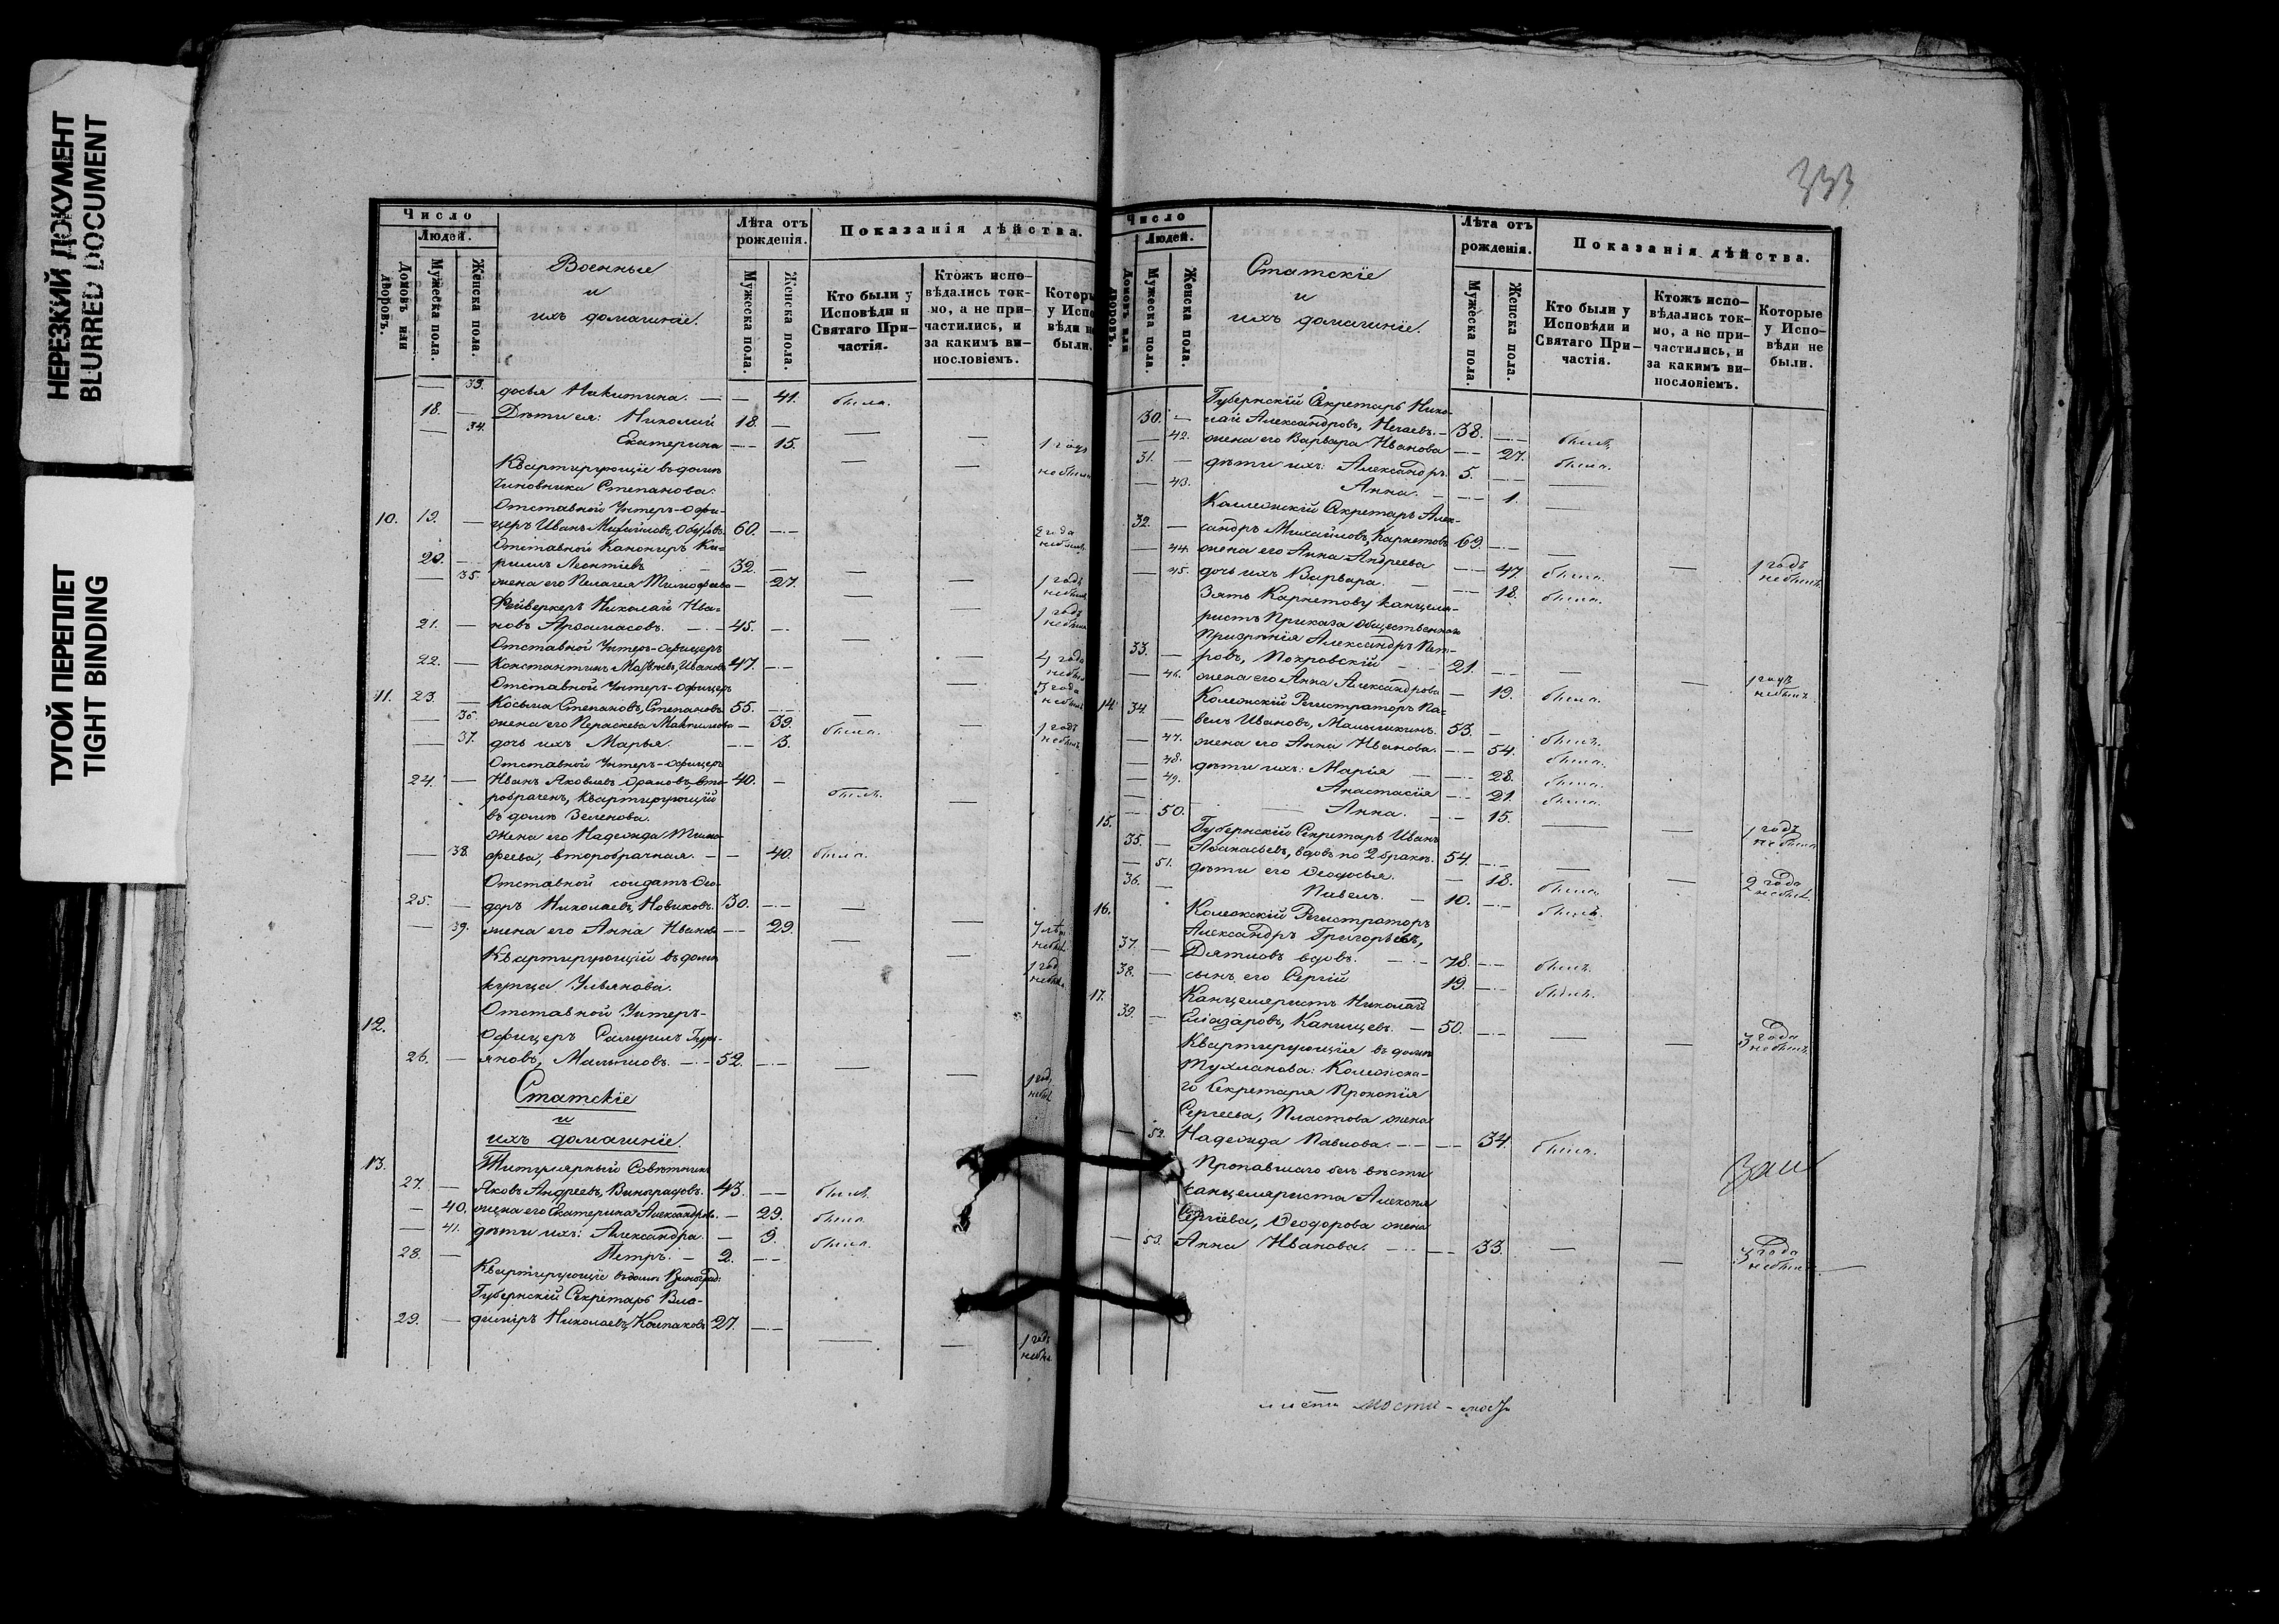 НЕРЕЗКИЙ ДОКУМЕНТ
BLURRED DOCUMENT
ТУГОЙ ПЕРЕПЛЕТ
TIGHT BINDING
Число
Людей.
Домовъ или дворовъ.
Мужеска пола.
Женска пола.
Военные
и
ихъ домашніе.
Лѣта отъ рожденія.
Мужеска пола.
Женска пола.
Показанія дѣйства.
Кто были у Исповѣди и Святаго Причастія.
Ктожъ исповѣдались токмо, а не причастились, и за какимъ винословіемъ.
Которы
у Испо
вѣди н
были.
— 33. досья Никитина. — — 41. была.
18. — Дѣти ея: Николай 18. — —
— 34. Екатерина — — 15. — — 1 годъ
Квартирующіе въ домѣ не были
Чиновника Степанова:
Отставной Унтеръ-Офи-
10. 19. — церъ Иванъ Михайловъ, 60. — — 2 года
Отставной Канониръ Ки- не былъ
20. — риллъ Леонтіевъ — 32. — — —
— 35. жена его Пелагея Тимофеева — 27. — — 1 годъ
Фейверкеръ Николай Ива- 1 годъ
21. — новъ Арзамасовъ. — — 45. — — —
Отставной Унтеръ-Офицеръ
22. — Константинъ Ивановъ 47. — — — 4 года
Отставной Унтеръ-Офицеръ 3 года
11. 23. — Косьма Степановъ, Степановъ 55. — — —
— 36. жена его Параскева Максимова — 39. была. 1 годъ
— 37. дочь ихъ Марья. — — 3.
Отставной Унтеръ-Офицеръ
24. — Иванъ Яковлевъ вто- 40. —
робраченъ, квартирующій былъ. —
въ домѣ Зеленова.
жена его Надежда Тимо-
— 38. феева, второбрачная. — — 40. была.
Отставной солдатъ Ѳео-
25. — доръ Николаевъ, Новиковъ. 30. — — — —
— 39. жена его Анна Иванова — — 29. — — 7 лѣт
Квартирующій въ домѣ
купца Ульянова. 1 год
Отставной Унтеръ-
12.
Офицеръ Самуилъ
26. — яновъ, Малышовъ. — — 52. — — — — 1 год
Статскіе
и
ихъ домашніе.
13. Титулярный Совѣтникъ
27. — Яковъ Андреевъ, Виноградовъ. 43. — — былъ.
— 40. жена его Екатерина Александрова. — 29. была.
— 41. дѣти ихъ: Александра. — 9. была.
28. — Петръ. — 2. — —
Квартирующіе въ домѣ Виноград:
Губернскій Секретарь Вла-
29. — диміръ Николаевъ, Колпаковъ 27. — — — — 1 годъ
333
Число
Людей.
Домовъ или дворовъ.
Мужеска пола.
Женска пола.
Статскіе
и
ихъ домашніе.
Лѣта отъ рожденія.
Мужеска пола.
Женска пола.
Показанія дѣйства.
Кто были у Исповѣди и Святаго Причастія.
Ктожъ исповѣдались токмо, а не причастились, и за какимъ винословіемъ.
Которые у Исповѣди не были.
Губернскій Секретарь Нико-
30. — лай Александровъ, Нечаевъ. — 38. — — былъ,
— 42. жена его Варвара Иванова — — 27. была.
31. — дѣти ихъ: Александръ. 5. — — —
— 43. Анна. — — — 1. —
Коллежскій Секретарь Алек-
32. — сандръ Михайловъ, Карнетовъ 69. — — — — 1 годъ
— 44. жена его Анна Андреева — — 47. была. не былъ
— 45. дочь ихъ Варвара. — — — 18. была.
Зять Карнетову канцеля-
ристъ Приказа Общественнаго
Призрѣнія Александръ Пет-
33. — ровъ, Покровскій — — 21. — — — 1 годъ
— 46. жена его Анна Александрова — 19. была. не былъ
14. 34. Коллежскій Регистраторъ Па-
— велъ Ивановъ, Малышкинъ. 53. — былъ.
— 47. жена его Анна Иванова. — — 54. была.
— 48. дѣти ихъ: Марія — — — 28. была.
— 49. Анастасія — — 21. была.
— 50. Анна. — — 15. — — 1 годъ
15. Губернскій Секретарь Иванъ не была
35. — Аѳанасьевъ, вдовъ по 2 бракѣ. 54. — — — — 2 года
— 51. дѣти его Ѳеодосья. — 18. была. не былъ.
36. — Павелъ. — 10. — — былъ.
16. Коллежскій Регистраторъ
Александръ Григорьевъ,
37. — Дятловъ вдовъ. — — 78. — — былъ.
38. — сынъ его Сергій 19. — — былъ.
17. Канцеляристъ Николай
39. — Елиазаровъ, Канищевъ. — 50. — — — — 3 года
Квартирующія въ домѣ не былъ.
Тухманова: Коллежска-
го Секретаря Прокопія
Сергеева, Пластова жена
— 52. Надежда Павлова. — — — — 34. была.
Пропавшаго безъ вѣсти
канцеляриста Алексѣя
Сергіева, Ѳеодорова жена
— 53. Анна Иванова. — — — — 33. — — 3 года
не была.